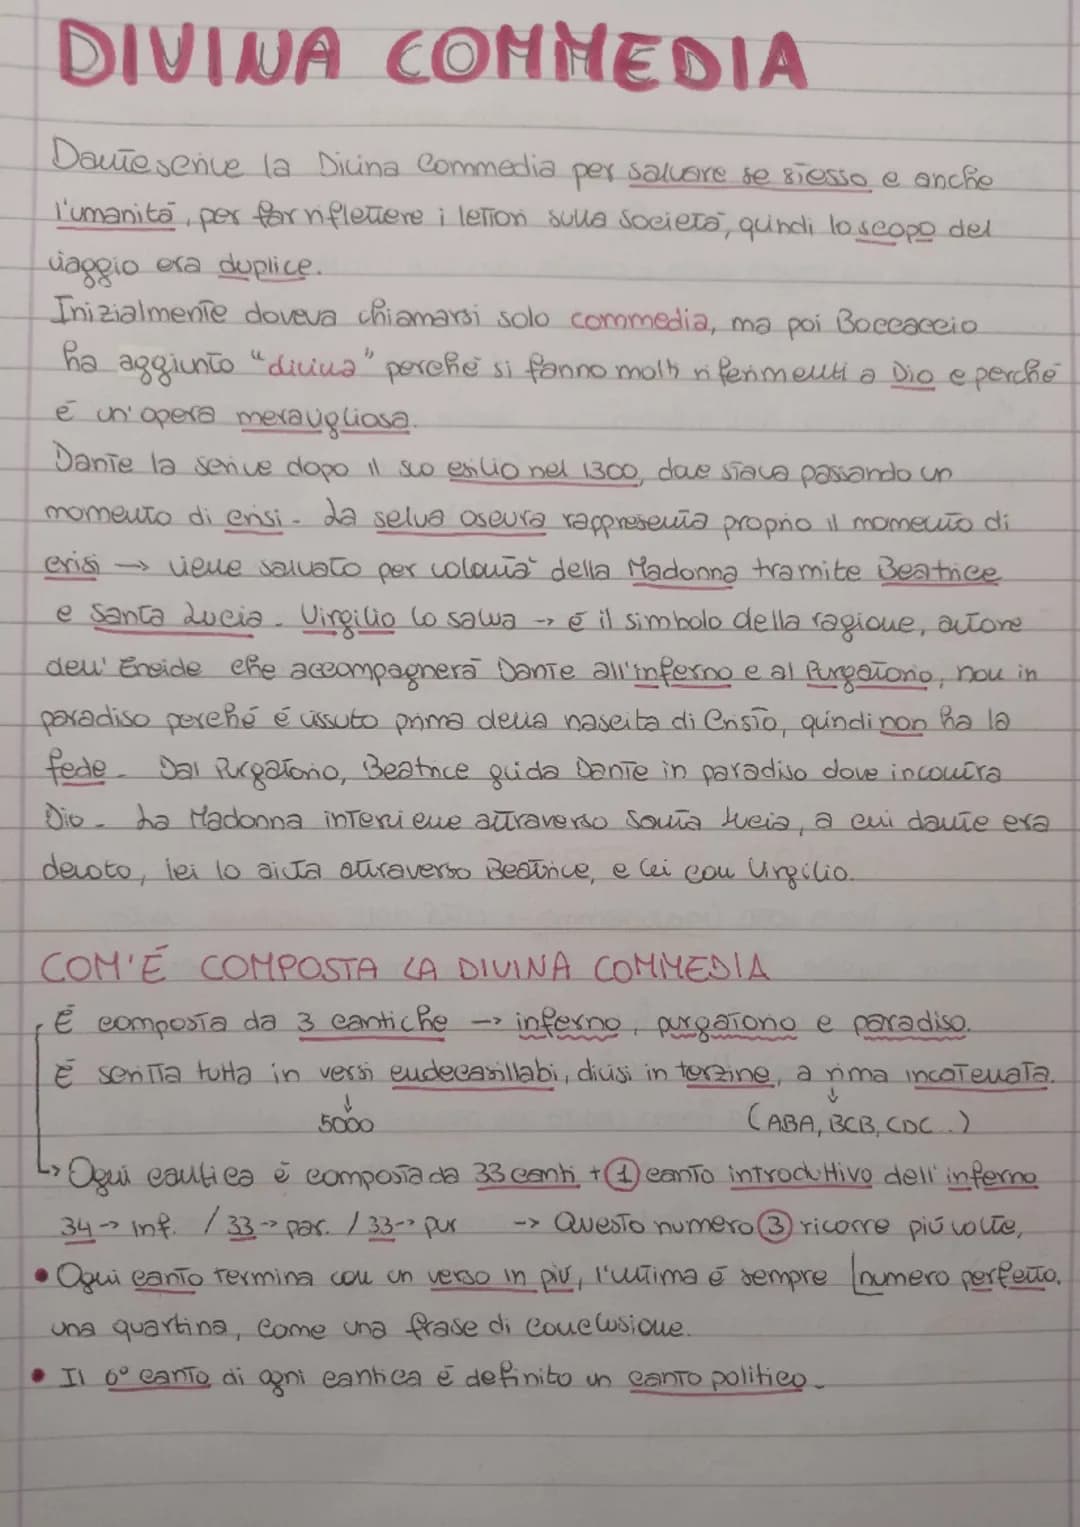 DIVINA COMMEDIA
Dante scrive la Divina Commedia per salvare se stesso e anche
l'umanità, per far riflettere i lettori sulla società, quindi lo scopo del
viaggio era duplice.
Inizialmente doveva chiamarsi solo commedia, ma poi Boccaccio
ha aggiunto "divina" perché si fanno molti riferimenti a Dio e perché
é un'opera meravigliosa.
Dante la scrive dopo il suo esilio nel 1300, dove stava passando un
momento di crisi. La selva oscura rappresenta proprio il momento di
crisi → viene salvato per volontà della Madonna tramite Beatrice
e Santa Lucia. Virgilio lo salva → é il simbolo della ragione, autore
dell'Eneide che accompagnerà Dante all'inferno e al Purgatorio, non in
paradiso perché é vissuto prima della nascita di Cristo, quindi non ha la
fede. Dal Purgatorio, Beatrice guida Dante in paradiso dove incontra
Dio. La Madonna interviene attraverso Santa Lucia, a cui dante era
devoto, lei lo aiuta attraverso Beatrice, e lei con Virgilio.
COM'É COMPOSTA LA DIVINA COMMEDIA
É composta da 3 cantiche → inferno, purgatorio e paradiso.
É scritta tutta in versi endecasillabi, divisi in terzine, a rima incatenata.
↓ 5000 ↓ (ABA, BCB, CDC..)
↳ Ogni cantica é composta da 33 canti + 1 canto introduttivo dell'inferno
34 → inf. / 33 → par. / 33 → pur → Questo numero 3 ricorre più volte,
• Ogni canto termina con un verso in più, l'ultima é sempre numero perfetto.
una quartina, come una frase di conclusione.
• Il 6° canto di ogni cantica é definito un canto politico.